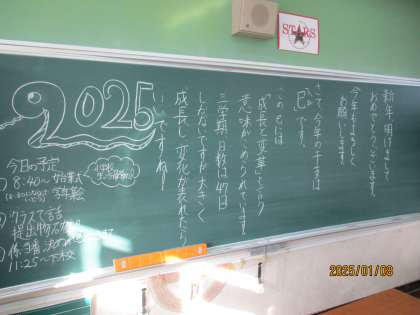 STARS
新年明けまして
おめでとうございます。
今年もよろしく
お願いします。
さて今年の干支は
「巳」です。
この巳には
「成長と変革」という
意味がこめられています。
三学期、日数は47日
しかないですが大きく
成長し、変化が表れたら
いいですね!
2025
今日の予定
8:40〜 始業式
学年総
クラスで話
提出物
11:25〜下校
2025/01/08